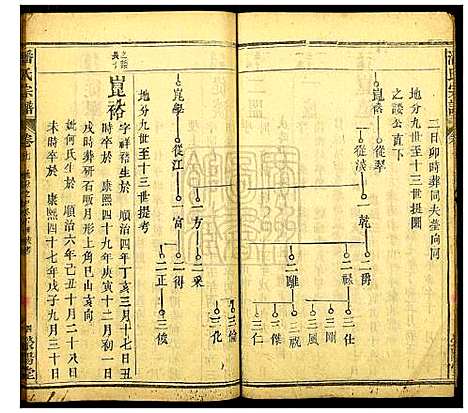 潘氏宗譜
二日卯時葬同夫塋向同
之諉公直下
地分九世至十三世挺圖
崑裕
從翠
從淺
一乾
二爵
二祿
二雕
三仕
三剛
三風
三傑
三倆
崑學
從江
一方
一富
二采
二得
二正
三化
三俊
地分九世至十三世挺考
之諉長子
崑裕
字祥 生於 順治四年丁亥三月十七日丑
戌時葬研石畈月形上角巳山亥向
康熙四十九年庚寅十二月初一日
妣何氏生於 順治六年己丑十月二十八日
未時 於 康熙四十七年戊子九月三十日
潘氏宗譜
卷
四
滎陽堂